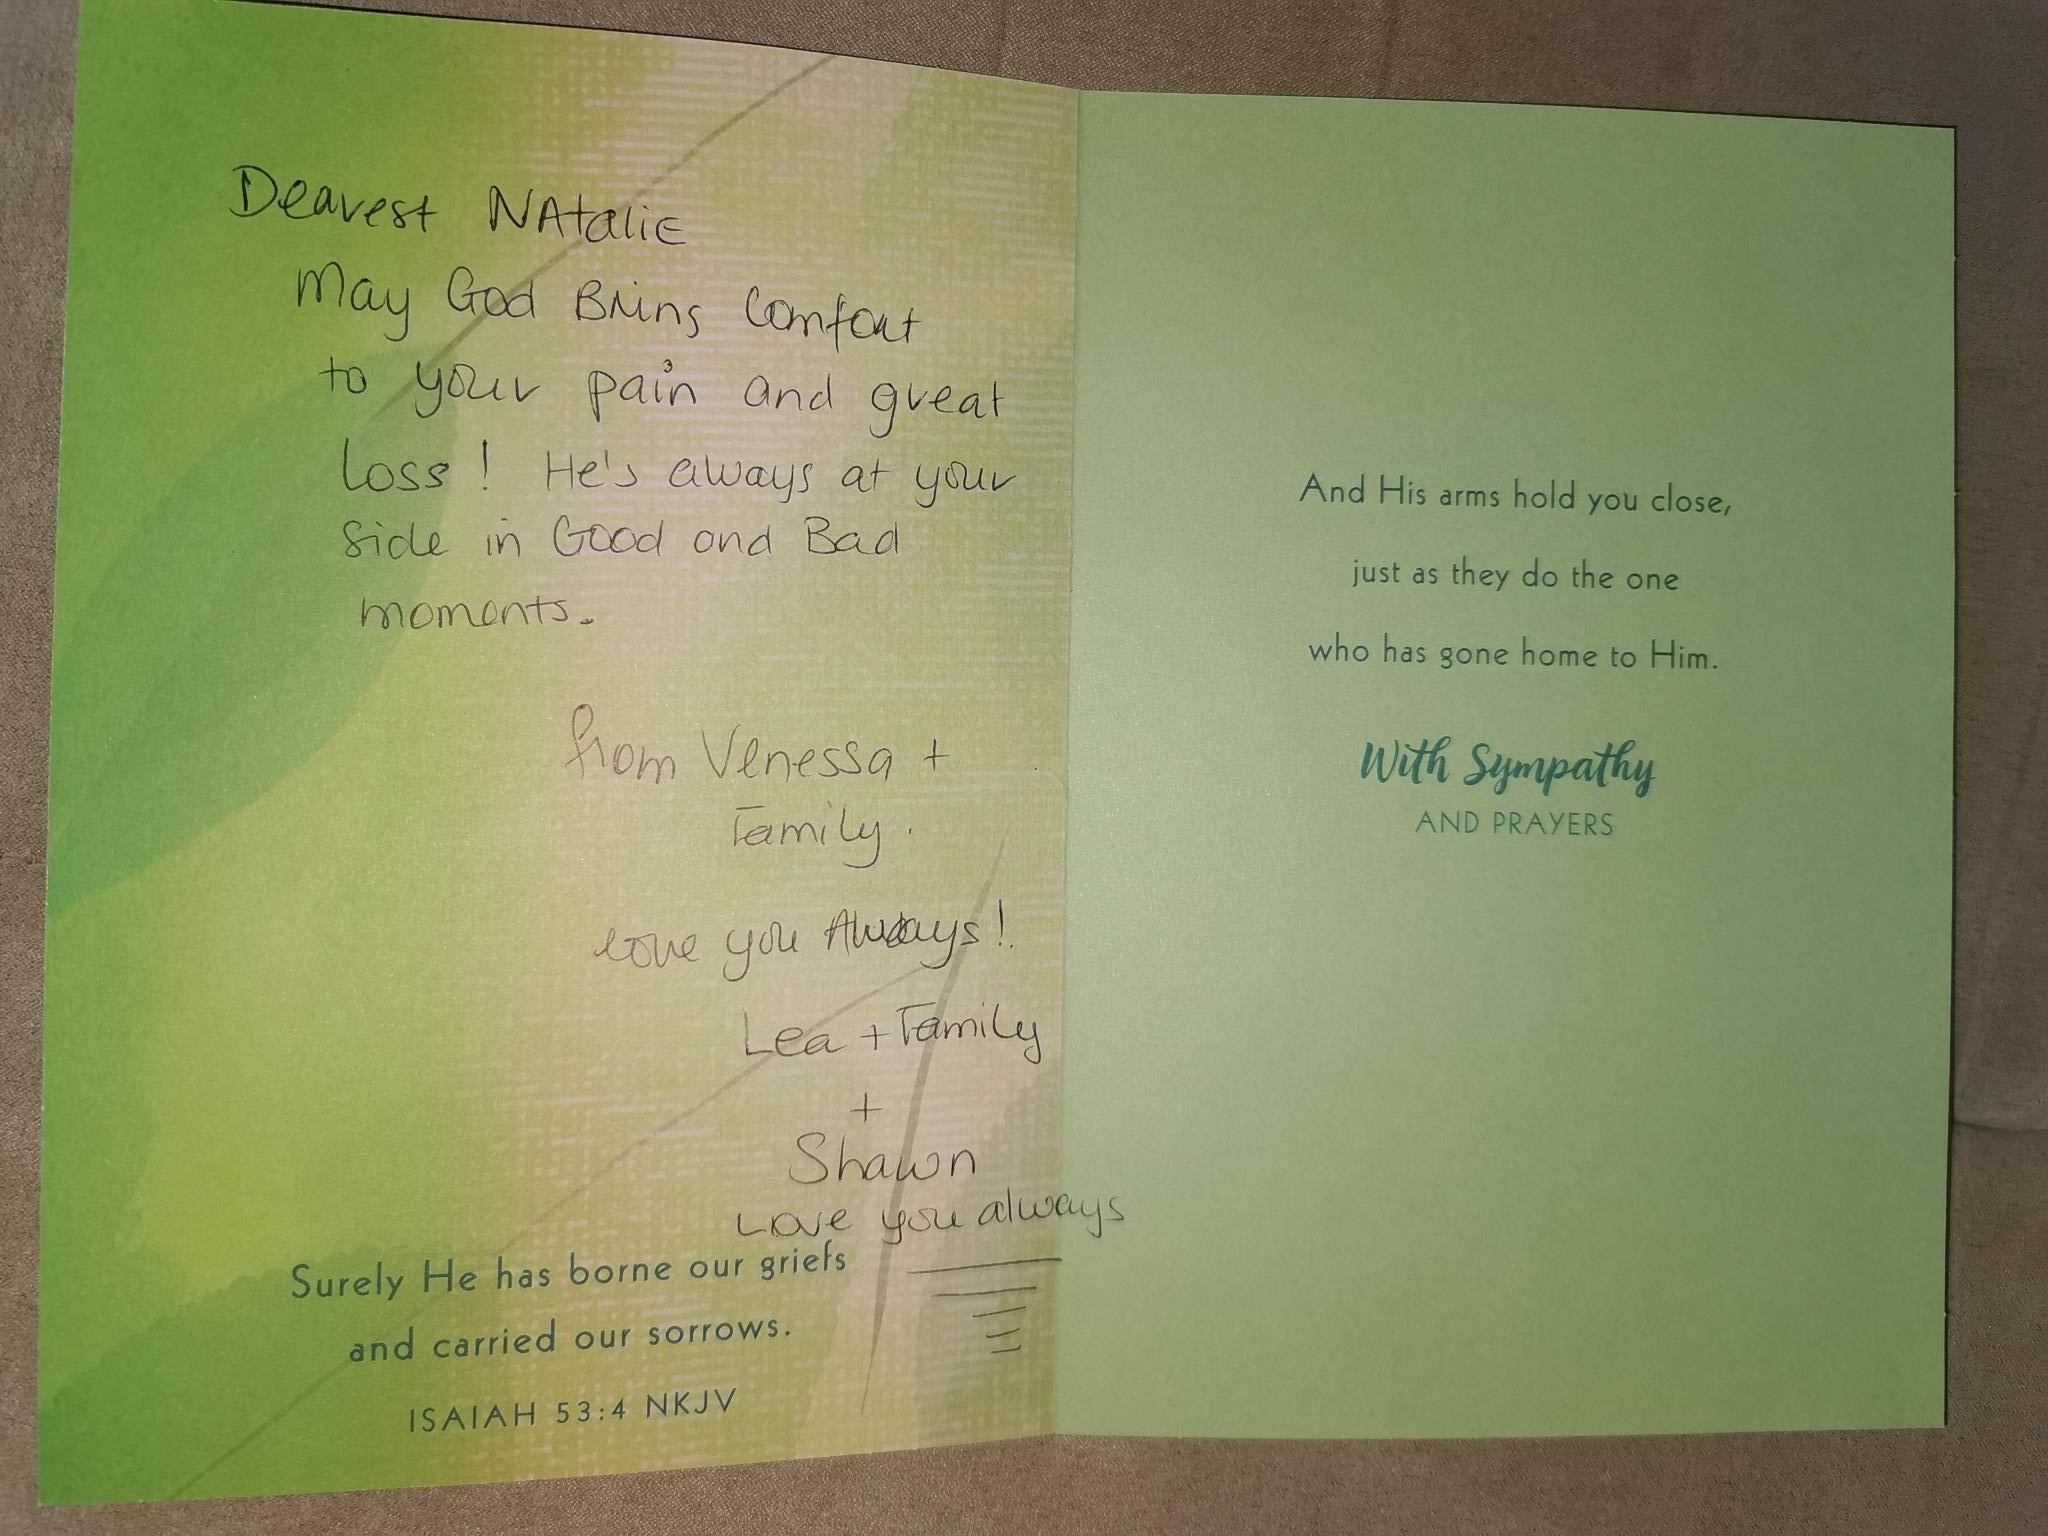 Dearest NAtaliE
May God Brings Comfort
to your pain and great
loss! He's always at your
side in Good and Bad
moments.
from Venessa +
Family.
love you Always!
Lea + Family
+
Shawn
Love you always
Surely He has borne our griefs
and carried our sorrows.
ISAIAH 53:4 NKJV
And His arms hold you close,
just as they do the one
who has gone home to Him.
With Sympathy
AND PRAYERS